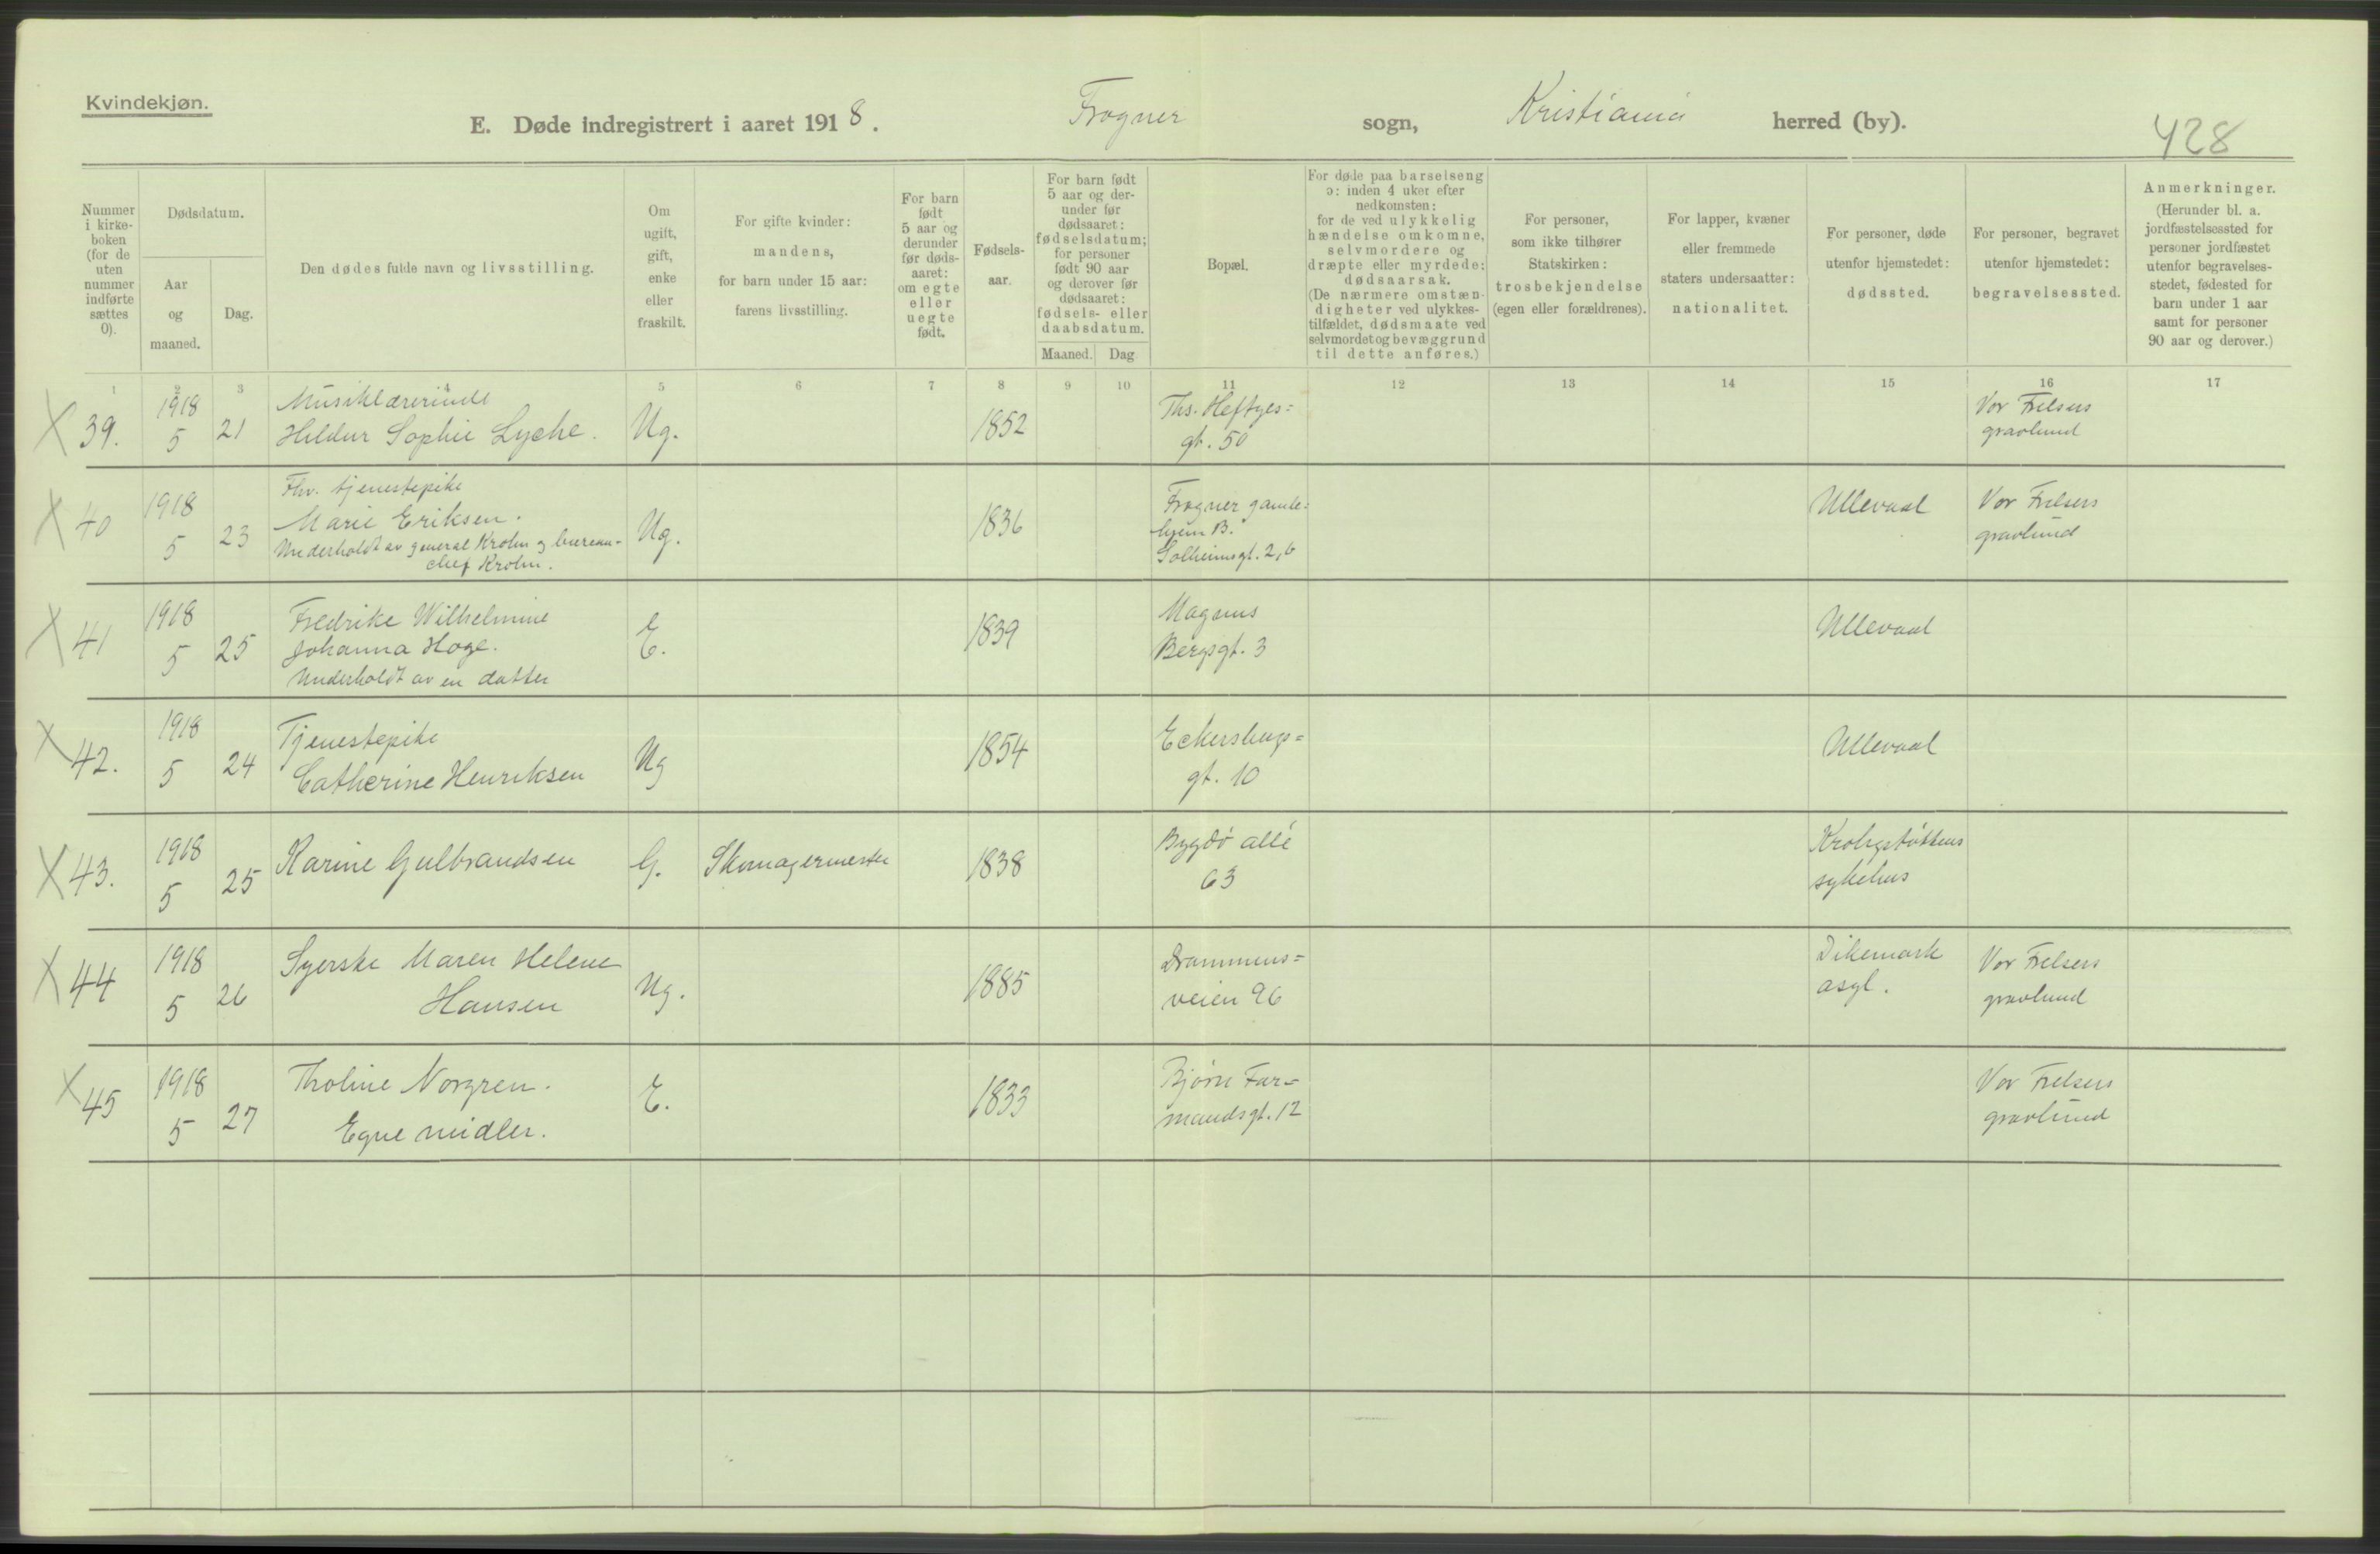 Kvindekjøn.
E. Døde indregistrert i aaret 1918. Frogner sogn, Kristiania herred (by).
428
Nummer i kirke-boken (for de uten nummer indførte sættes 0).
Dødsdatum.
Aar og maaned.
Dag.
Den dødes fulde navn og livsstilling.
Om ugift, gift, enke eller fraskilt.
For gifte kvinder: mandens, for barn under 15 aar: farens livsstilling.
For barn født 5 aar og derunder før døds-aaret: om egte eller uegte født.
Fødsels-aar.
For barn født 5 aar og der-under før dødsaaret: fødselsdatum; for personer født 90 aar og derover før dødsaaret: fødsels- eller daabsdatum.
Maaned. Dag
Bopæl.
For døde paa barselseng ɔ: inden 4 uker efter nedkomsten; for de ved ulykkelig hændelse omkomne, selvmordere og dræpte eller myrdede: dødsaarsak. (De nærmere omstæn-digheter ved ulykkes-tilfældet, dødsmaate ved selvmordet og bevæggrund til dette anføres.)
For personer, som ikke tilhører Statskirken: trosbekjendelse (egen eller forældrenes).
For lapper, kvæner eller fremmede staters undersaatter: nationalitet.
For personer, døde utenfor hjemstedet: dødssted.
For personer, begravet utenfor hjemstedet: begravelsessted.
Anmerkninger. (Herunder bl. a. jordfæstelsessted for personer jordfæstet utenfor begravelses-stedet, fødested for barn under 1 aar samt for personer 90 aar og derover.)
1 2 3 4 5 6 7 8 9 10 11 12 13 14 15 16 17
X 39. 1918 5 21 Musiklærerinde
Hildur Sophie Lyche. Ug. 1852 Ths. Heftyes=
gt. 50 Vor Frelsers
gravlund
X 40 1918 5 23 Fhv. tjenestepike
Marie Eriksen.
Underholdt av general Krohn og bureau-
chef Krohn. Ug. 1836 Frogner gamle=
hjem B.
Solheimsgt. 2,6 Ullevaal Vor Frelsers
gravlund
X 41 1918 5 25 Fredrike Wilhelmine
Johanna Hoge.
Underholdt av en datter E. 1839 Magnus
Bergsgt. 3 Ullevaal
X 42. 1918 5 24 Tjenestepike
Catherine Henriksen Ug 1854 Eckersbergs=
gt. 10 Ullevaal
X 43. 1918 5 25 Karine Gulbrandsen G. Skomagermester 1838 Bygdø allé
63 Krohgstøttens
sykehus
X 44 1918 5 26 Syerske Maren Helene
Hansen Ug. 1885 Drammens=
veien 96 Dikemark
asyl. Vor Frelsers
gravlund
X 45 1918 5 27 Tholine Norgren.
Egne midler. E. 1833 Bjørn Far=
mandsgt. 12 Vor Frelsers
gravlund